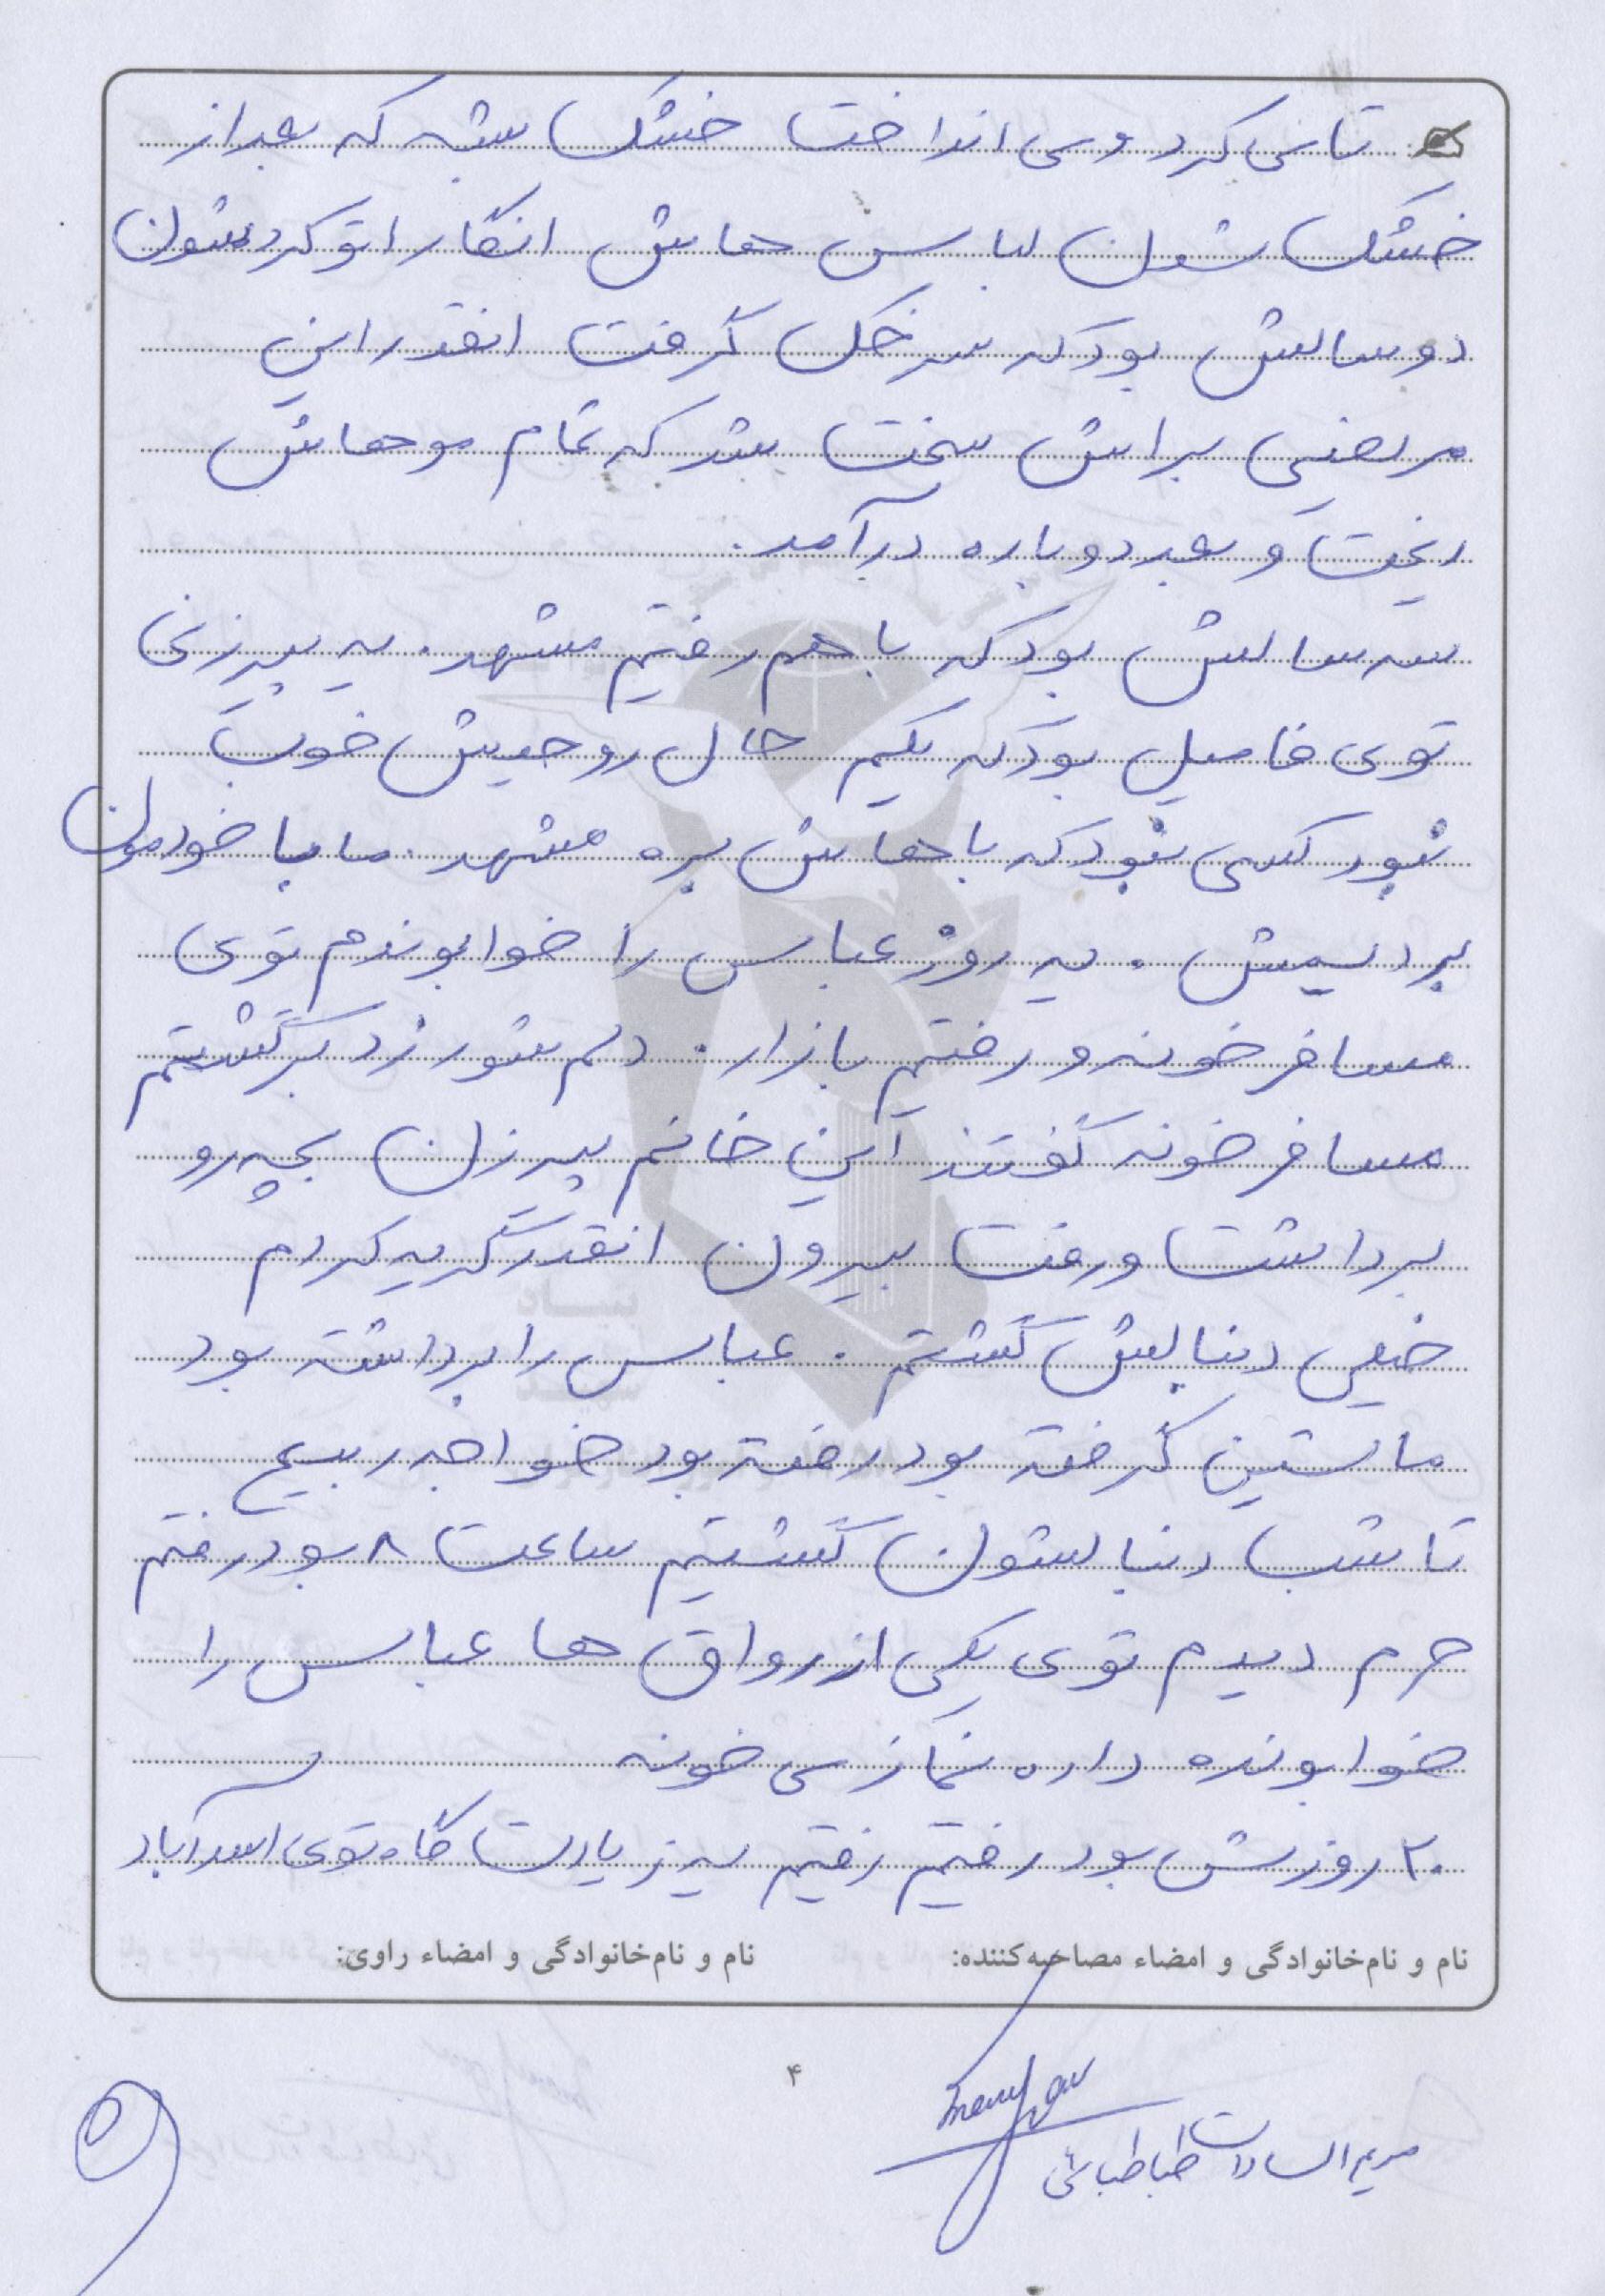 تا می کرد و می انداخت خشک بشه که بعد از
خشک شدن لباس هاش انگار اتو کردشون
دو سالش بود که سرخک گرفت انقدر این
مریضی براش سخت شد که تمام موهاش
ریخت و بعد دوباره درآمد.
سه سالش بود که با هم رفتیم مشهد. یه پیرزنی
توی فامیل بود که بگیم حال روحیش خوب
نبود کسی نبود که باهاش بره مشهد. ما با خودمون
بردیمش. یه روز عباس را خوابوندم توی
مسافرخونه و رفتیم بازار. دلم شور زد برگشتم
مسافرخونه گفتند این خانم پیرزن بچه رو
برداشت و رفت بیرون انقدر گریه کردم
خیلی دنبالش گشتم. عباس را برداشته بود
ماشین گرفته بود رفته بود خواجه ربیع
تا شب دنبالشون گشتیم ساعت ۸ بود رفتم
حرم دیدم توی یکی از رواق ها عباس را
خوابونده داره نماز می خونه
۲۰ روزش بود رفتیم رفتیم یه زیارت گاه توی اسدآباد
نام و نام‌خانوادگی و امضاء مصاحبه‌کننده: نام و نام‌خانوادگی و امضاء راوی:
۴
مریم السادات طباطبائی